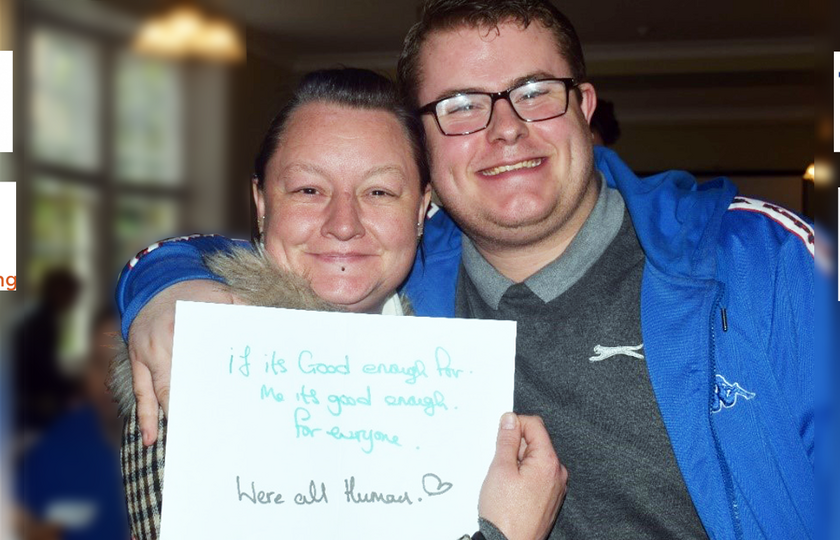 if its Good enough for.
Me it's good enough.
for everyone.
Were all Human. ♡
ng